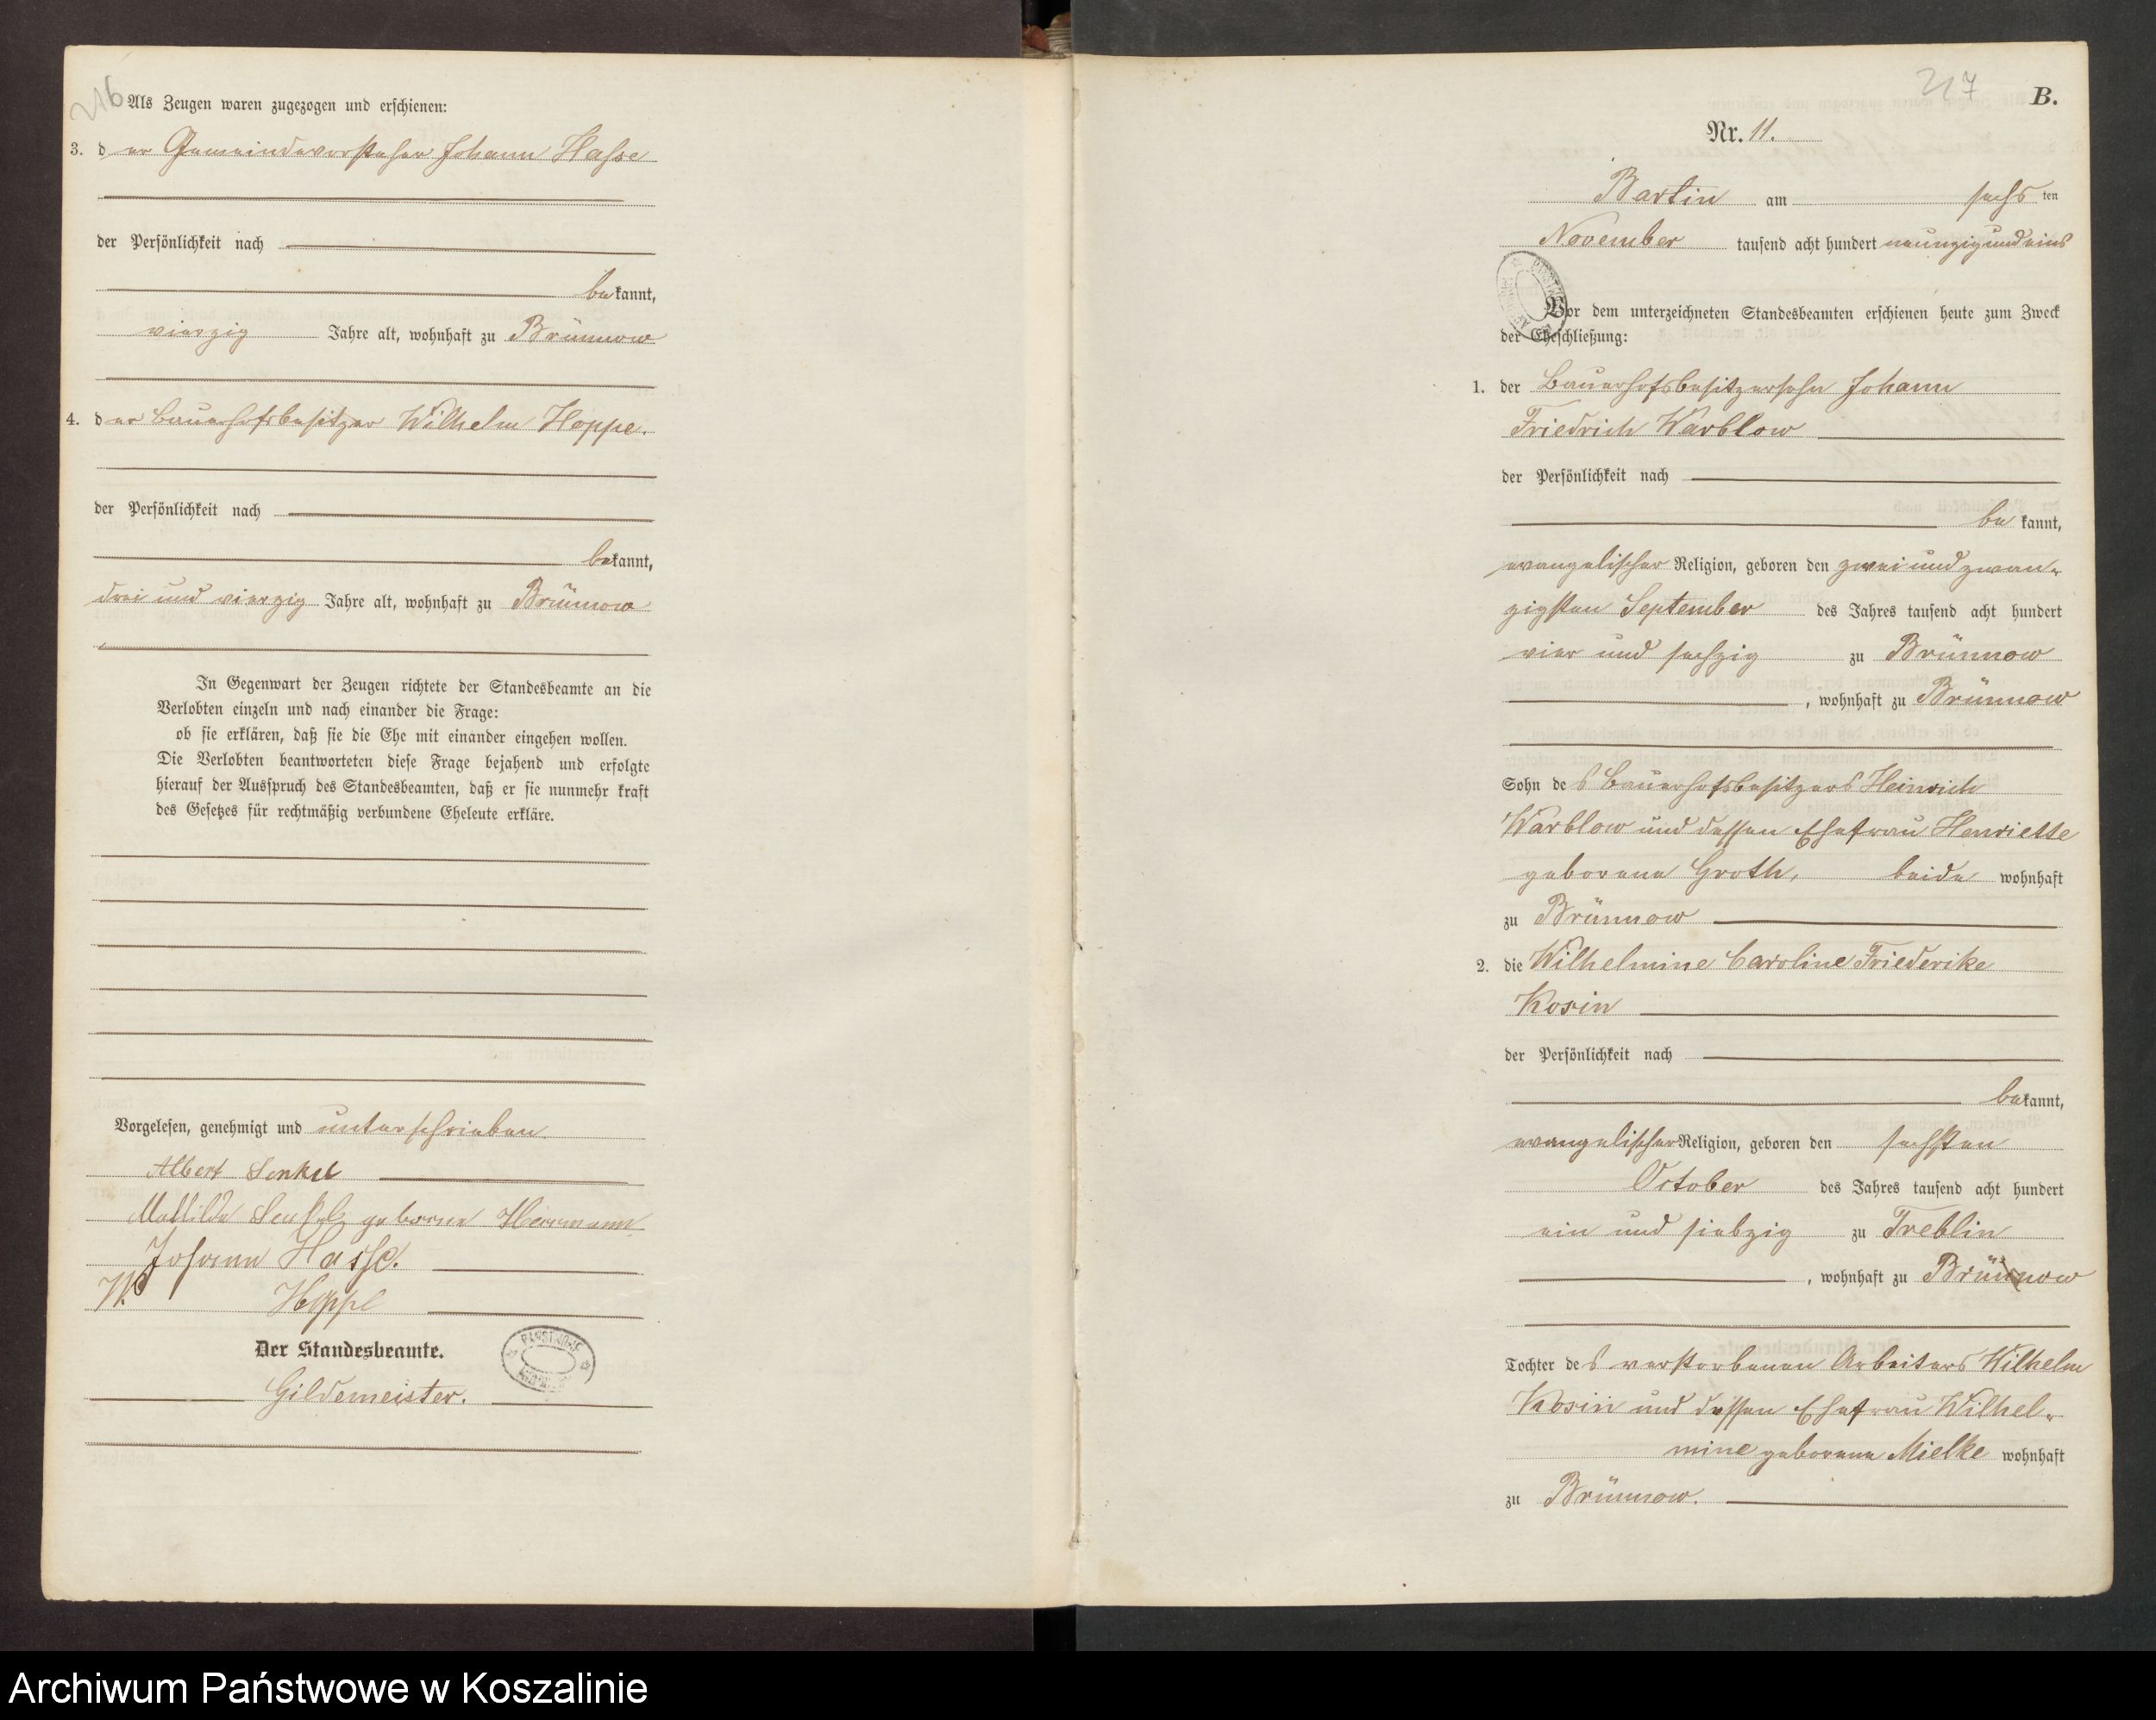 216
Als Zeugen waren zugezogen und erschienen:
3. d er Gemeindevorsteher Johann Hasse
der Persönlichkeit nach
be kannt,
vierzig Jahre alt, wohnhaft zu Brünnow
4. d er Bauerhofsbesitzer Wilhelm Hoppe.
der Persönlichkeit nach
bekannt,
drei und vierzig Jahre alt, wohnhaft zu Brünnow
In Gegenwart der Zeugen richtete der Standesbeamte an die
Verlobten einzeln und nach einander die Frage:
ob sie erklären, daß sie die Ehe mit einander eingehen wollen.
Die Verlobten beantworteten diese Frage bejahend und erfolgte
hierauf der Ausspruch des Standesbeamten, daß er sie nunmehr kraft
des Gesetzes für rechtmäßig verbundene Eheleute erkläre.
Vorgelesen, genehmigt und unterschrieben
Albert
geborne Herrmann
Johann Hasse.
W Hoppe
Der Standesbeamte.
Gildemeister.
217
B.
Nr. 11.
Bartin am sechs ten
November tausend acht hundert neunzig und eins
Vor dem unterzeichneten Standesbeamten erschienen heute zum Zweck
der Eheschließung:
1. der Bauerhofsbesitzersohn Johann
Friedrich Warblow
der Persönlichkeit nach
be kannt,
evangelischer Religion, geboren den zwei und zwan-
zigsten September des Jahres tausend acht hundert
vier und sechzig zu Brünnow
, wohnhaft zu Brünnow
Sohn de s Bauerhofsbesitzers Heinrich
Warblow und dessen Ehefrau Henriette
geborene Groth, beide wohnhaft
zu Brünnow
2. die Wilhelmine Caroline Friederike
Kosin
der Persönlichkeit nach
bekannt,
evangelischer Religion, geboren den sechsten
October des Jahres tausend acht hundert
ein und siebzig zu Treblin
, wohnhaft zu Brünnow
Tochter de s verstorbenen Arbeiters Wilhelm
Kosin und dessen Ehefrau Wilhel-
mine geborene Mielke wohnhaft
zu Brünnow.
Archiwum Państwowe w Koszalinie